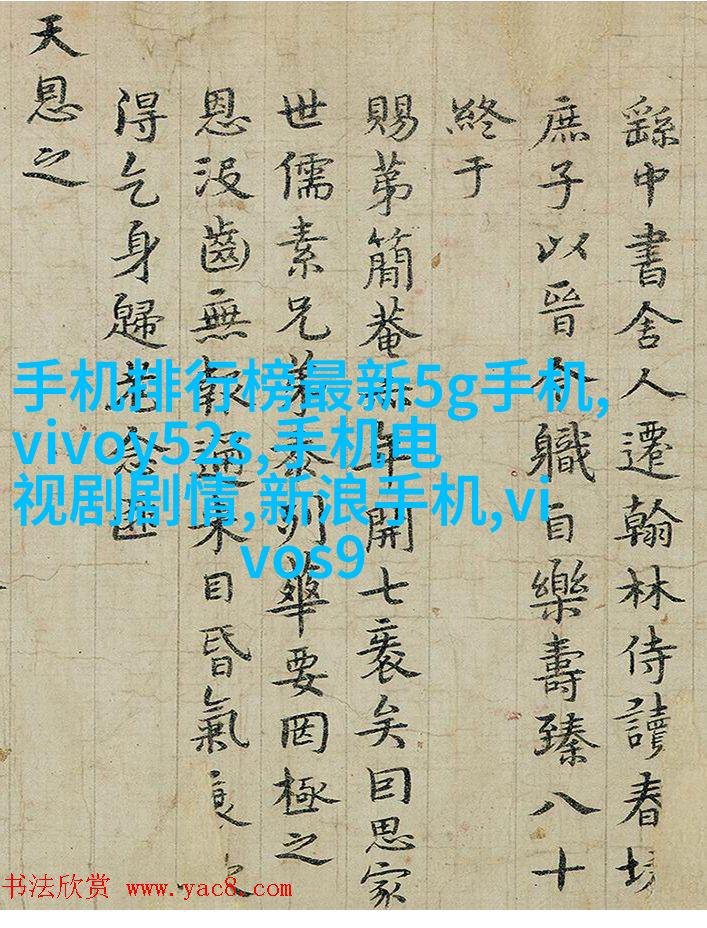 繇中書舍人遷翰林侍讀春坊
庶子以晉今職自樂壽臻八十
終于
賜苐簡菴亦年開七袠矣囙思家
世儒素兄弟忝列華要罔極之
恩沒齒無報邇来目昏氣衰
得乞身歸老念
天恩之
手机排行榜最新5g手机,
vivoy52s,手机电
视剧剧情,新浪手机,vi
vos9
书法欣赏 www.yac8.com